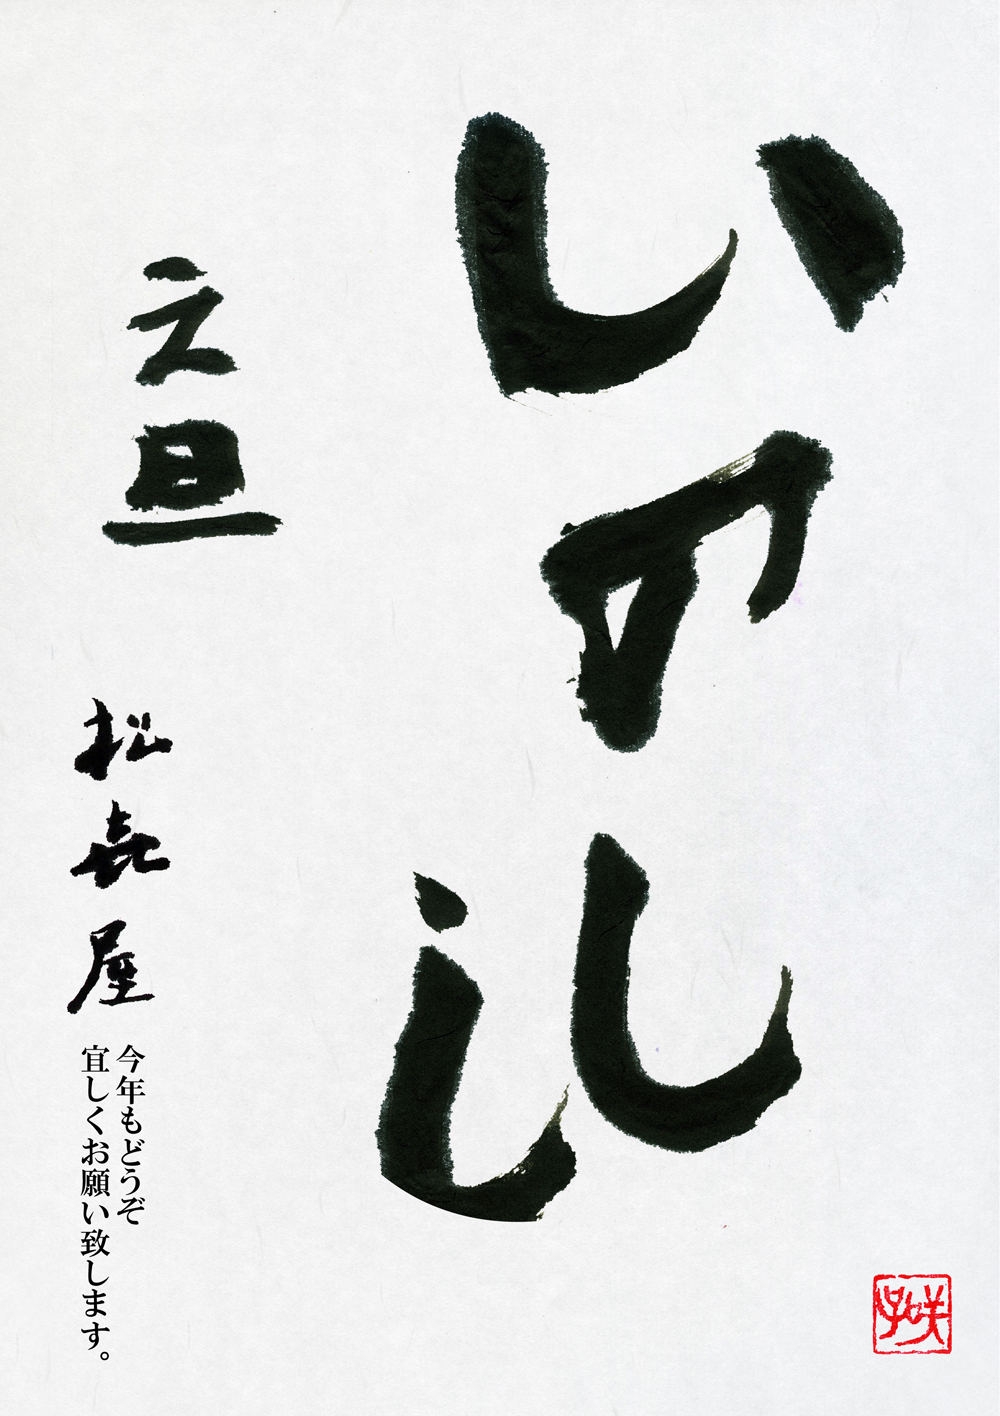 いのしし
元旦
松㐂屋
今年もどうぞ
宜しくお願い致します。
咲子